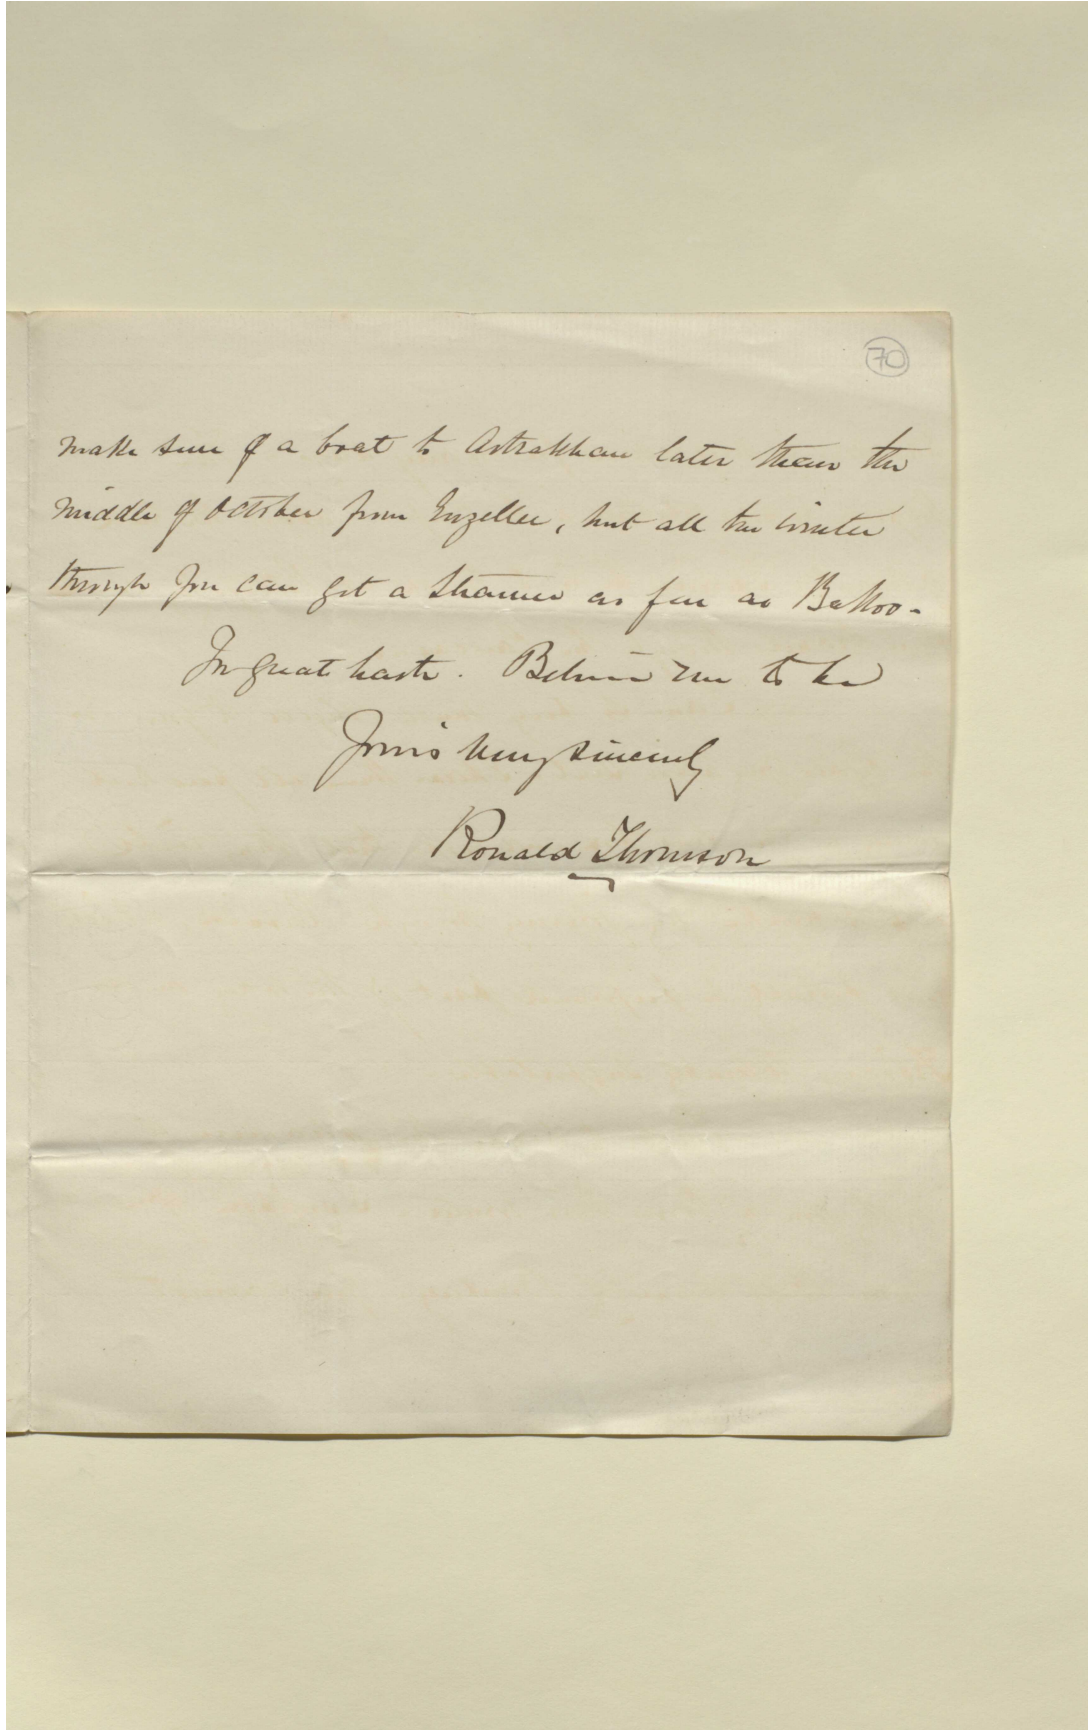 70
make sure of a boat to Astrakhan later than the
middle of October from Enzellee, but all the winter
through you can get a steamer as far as Bakoo -
In great haste. Believe me to be
Yours very sincerely
Ronald Thomson